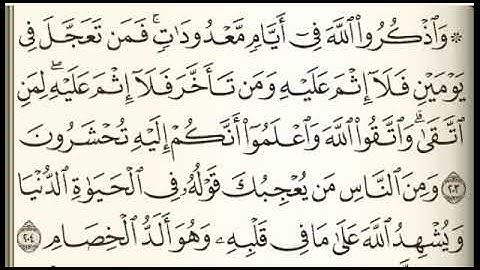 ۞ وَاذْكُرُوا اللَّهَ فِي أَيَّامٍ مَّعْدُودَاتٍ ۚ فَمَن تَعَجَّلَ فِي
يَوْمَيْنِ فَلَا إِثْمَ عَلَيْهِ وَمَن تَأَخَّرَ فَلَا إِثْمَ عَلَيْهِ ۚ لِمَنِ
اتَّقَىٰ ۗ وَاتَّقُوا اللَّهَ وَاعْلَمُوا أَنَّكُمْ إِلَيْهِ تُحْشَرُونَ
﴿٢٠٣﴾ وَمِنَ النَّاسِ مَن يُعْجِبُكَ قَوْلُهُ فِي الْحَيَاةِ الدُّنْيَا
وَيُشْهِدُ اللَّهَ عَلَىٰ مَا فِي قَلْبِهِ وَهُوَ أَلَدُّ الْخِصَامِ ﴿٢٠٤﴾